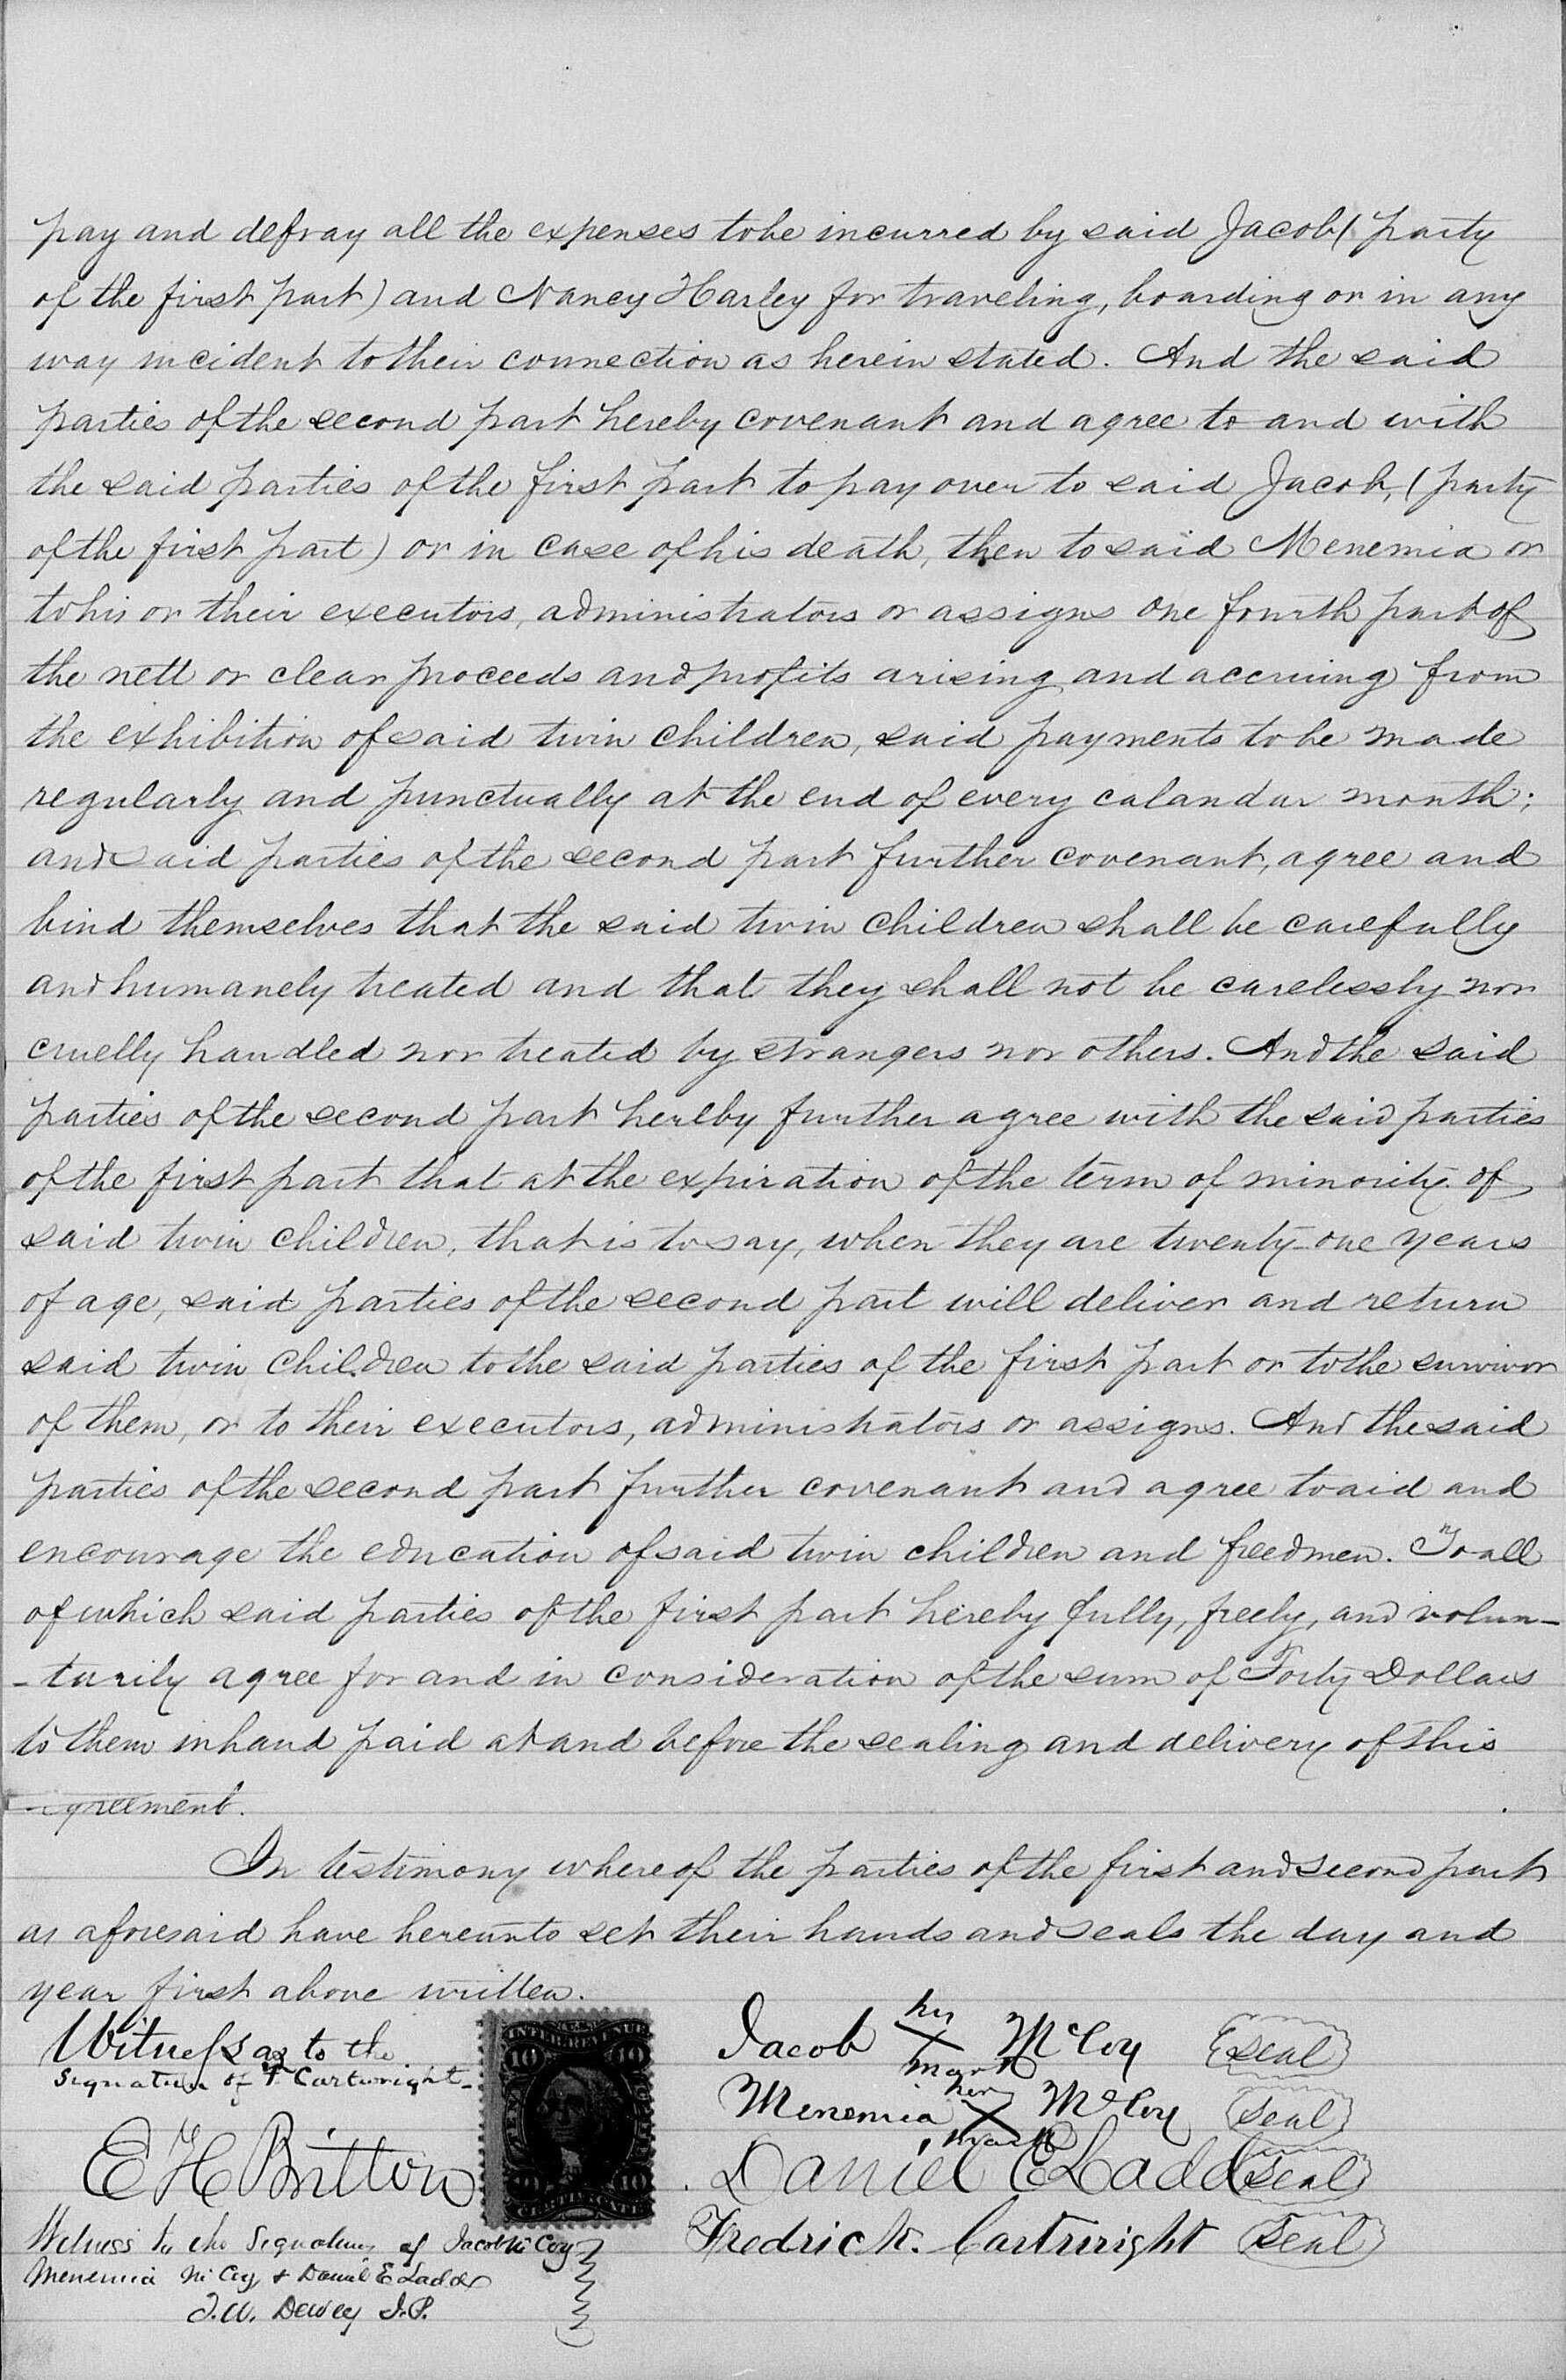 pay and defray all the expenses to be incurred by said Jacob (party
of the first part) and Nancy Harley for traveling, boarding or in any
way incident to their connection as herein stated. And the said
parties of the second part hereby covenant and agree to and with
the said parties of the first part to pay over to said Jacob, (party
of the first part) or in case of his death, then to said Menemia or
to his or their executors, administrators or assigns one fourth part of
the nett or clear proceeds and profits arising and accruing from
the exhibition of said twin children, said payments to be made
regularly and punctually at the end of every calandar month;
and said parties of the second part further covenant, agree and
bind themselves that the said twin children shall be carefully
and humanely treated and that they shall not be carelessly nor
cruelly handled nor treated by strangers nor others. And the said
parties of the second part hereby further agree with the said parties
of the first part that at the expiration of the term of minority of
said twin children, that is to say, when they are twenty-one years
of age, said parties of the second part will deliver and return
said twin children to the said parties of the first part or to the survivor
of them, or to their executors, administrators or assigns. And the said
parties of the second part further covenant and agree to aid and
encourage the education of said twin children and freedmen. To all
of which said parties of the first part hereby fully, freely, and volun-
-tarily agree for and in consideration of the sum of Forty Dollars
to them in hand paid at and before the sealing and delivery of this
agreement.
In testimony whereof the parties of the first and second part
as aforesaid have hereunto set their hands and seals the day and
year first above written.
Witness as to the
signature of F Cartwright
E H Britton
Witness to the signatures of Jacob McCoy
Menemia McCoy & Daniel E Ladd
T.W. Dewey J.P.
INTER. REVENUE
10 10
TEN CENTS
10 10
CERTIFICATE
his
Jacob X McCoy seal
mark
her
Menemia X McCoy seal
mark
Daniel E Ladd seal
Fredrick. Cartwright seal